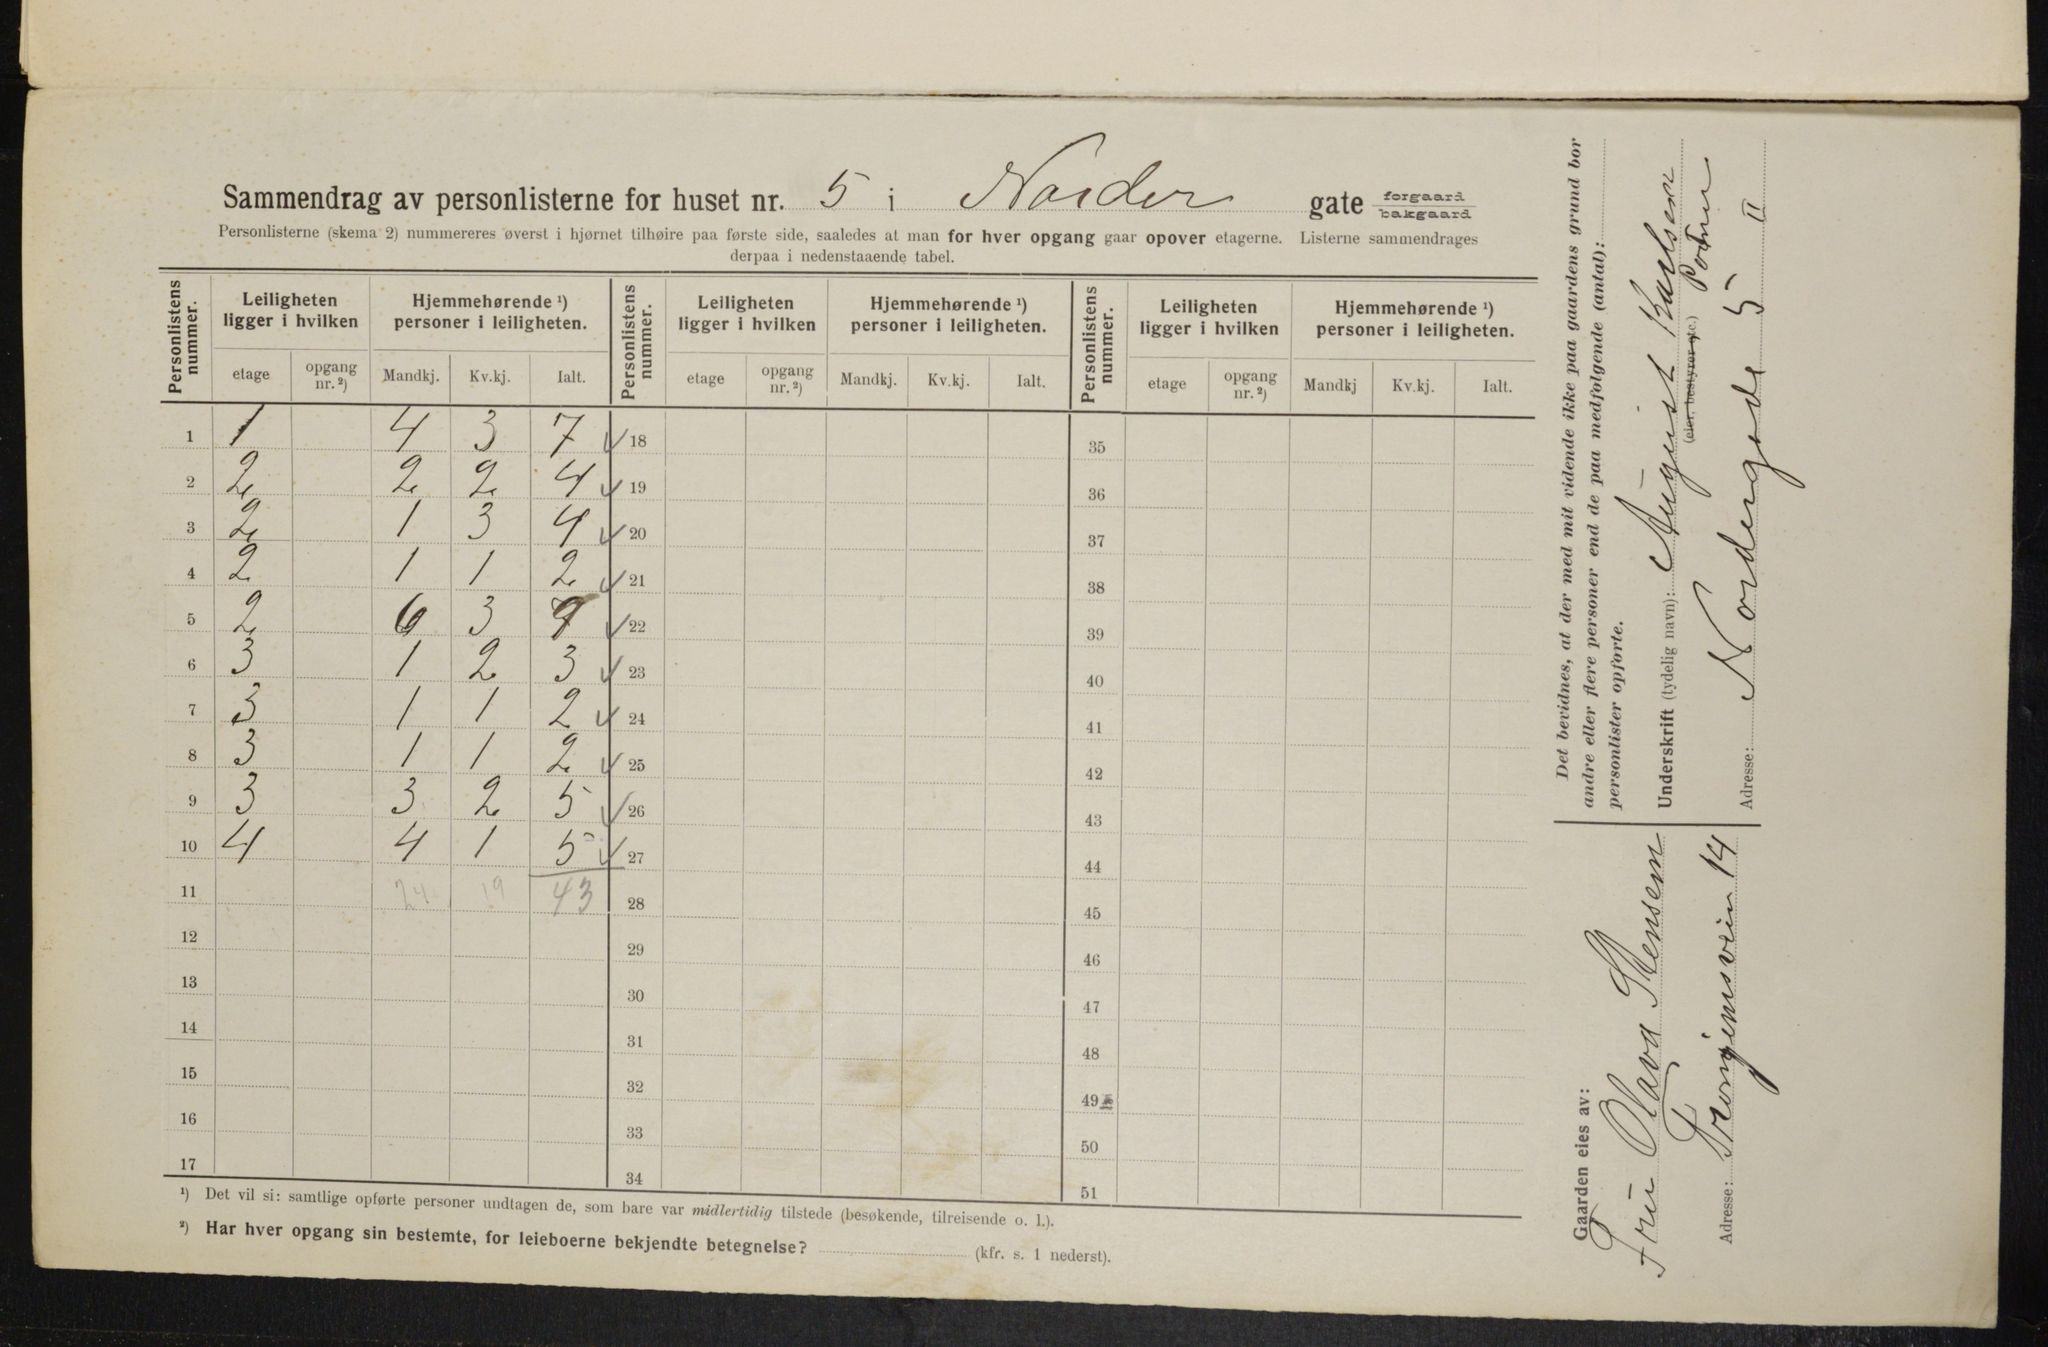 Sammendrag av personlisterne for huset nr. 5 i Norder gate forgaard bakgaard
Personlisterne (skema 2) nummereres øverst i hjørnet tilhøire paa første side, saaledes at man for hver opgang gaar opover etagerne. Listerne sammendrages
derpaa i nedenstaaende tabel.
Personlistens nummer. Leiligheten ligger i hvilken Hjemmehørende ¹) personer i leiligheten. Personlistens nummer. Leiligheten ligger i hvilken Hjemmehørende ¹) personer i leiligheten. Personlistens nummer. Leiligheten ligger i hvilken Hjemmehørende ¹) personer i leiligheten.
etage opgang nr. ²) Mandkj. Kv.kj. Ialt. etage opgang nr. ²) Mandkj. Kv.kj. Ialt. etage opgang nr. ²) Mandkj Kv.kj. Ialt.
1 1 4 3 7 ✓ 18 35
2 2 2 2 4 ✓ 19 36
3 2 1 3 4 ✓ 20 37
4 2 1 1 2 ✓ 21 38
5 2 6 3 9 ✓ 22 39
6 3 1 2 3 ✓ 23 40
7 3 1 1 2 ✓ 24 41
8 3 1 1 2 ✓ 25 42
9 3 3 2 5 ✓ 26 43
10 4 4 1 5 ✓ 27 44
11 24 19 43 28 45
12 29 46
13 30 47
14 31 48
15 32 49
16 33 50
17 34 51
¹) Det vil si: samtlige opførte personer undtagen de, som bare var midlertidig tilstede (besøkende, tilreisende o. l.).
²) Har hver opgang sin bestemte, for leieboerne bekjendte betegnelse? (kfr. s. 1 nederst).
Det bevidnes, at der med mit vidende ikke paa gaardens grund bor
andre eller flere personer end de paa medfølgende (antal):
personlister opførte.
Underskrift (tydelig navn): August Paulsen
(eier, bestyrer etc.)
Adresse: Nordergade 5 II
Gaarden eies av:
Fru Olava Stensen
Adresse: Frongnersvein 14